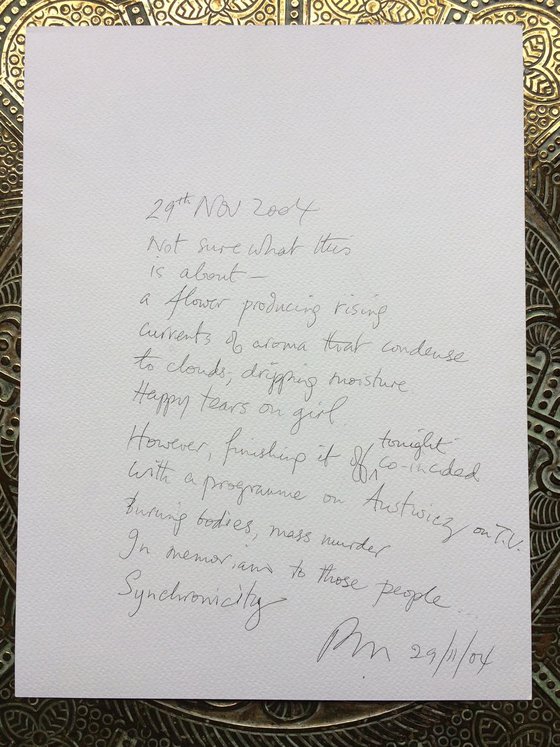 29th Nov 2004
Not sure what this
is about —
a flower producing rising
currents of aroma that condense
to clouds, dripping moisture
Happy tears on girl.
However, finishing it off tonight co-incided
with a programme on Austwicz on T.V.
burning bodies, mass murder
In memoriam to those people...
Synchronicity
29/11/04